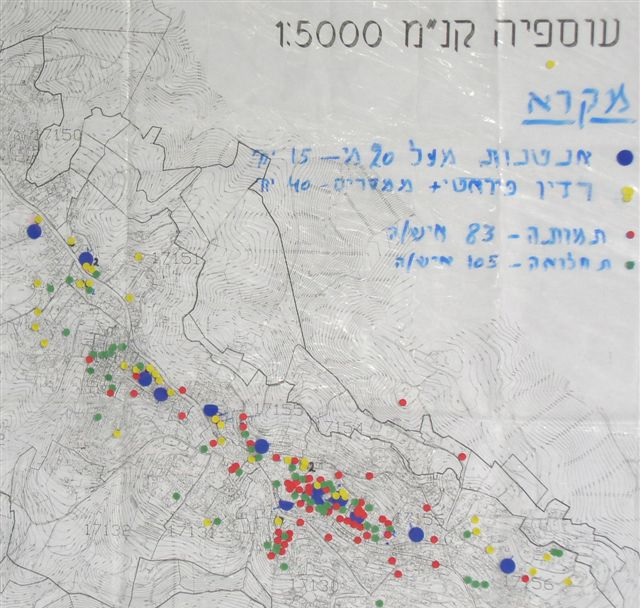 עוספיה קנ"מ 1:5000
מקרא
אנטנות מעל 20 מ' - 15 יח'
רדיו פיראטי + ממסרים - 40 יח'
תמותה - 83 איש/ה
תחלואה - 105 איש/ה
150
17151
2
17155
17154
2
17131
1713
17156